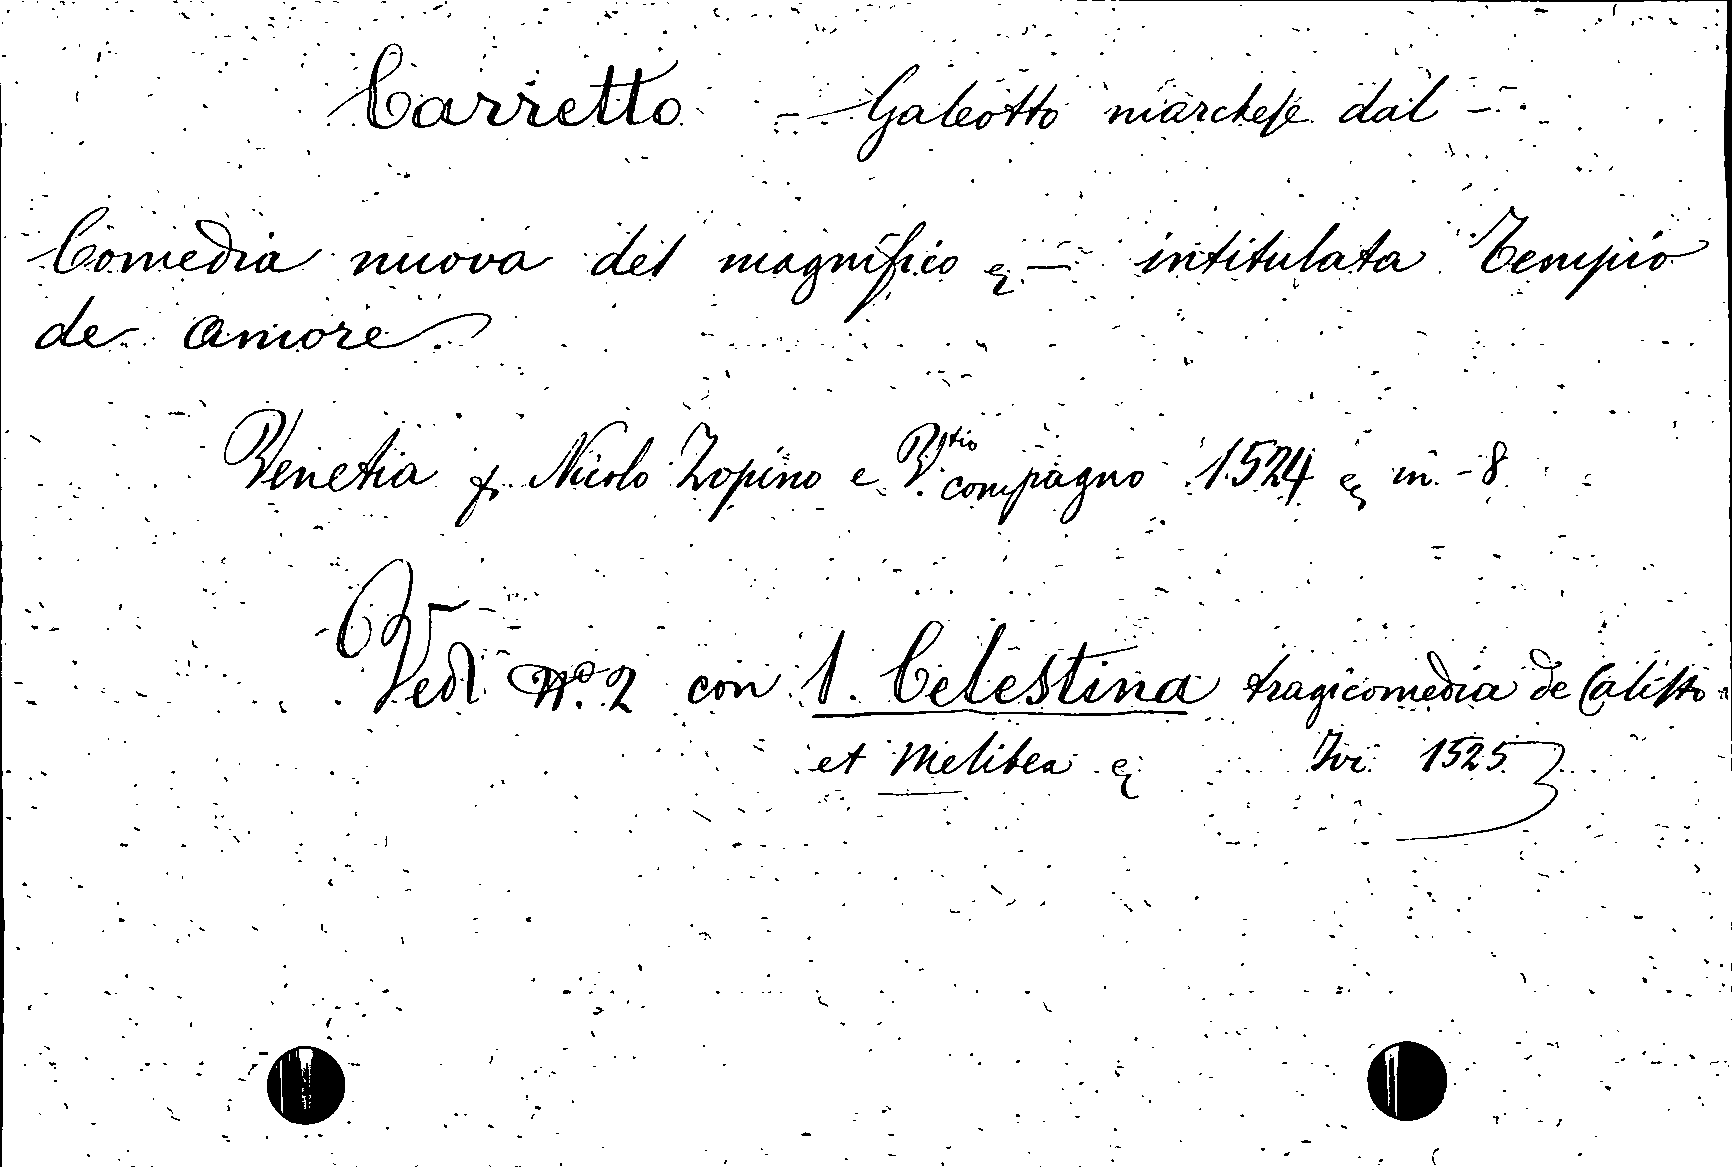 Carretto - Galeotto marchese dal -
Comedia nuova del magnifico & - intitulata Tempio
de Amore.
Venetia p. Nicolo Zopino e V.tio compagno 1524 & in - 8
Vedi No. 2 con 1. Celestina tragicomedia de Calisto
et Melibea & Ivi 1525